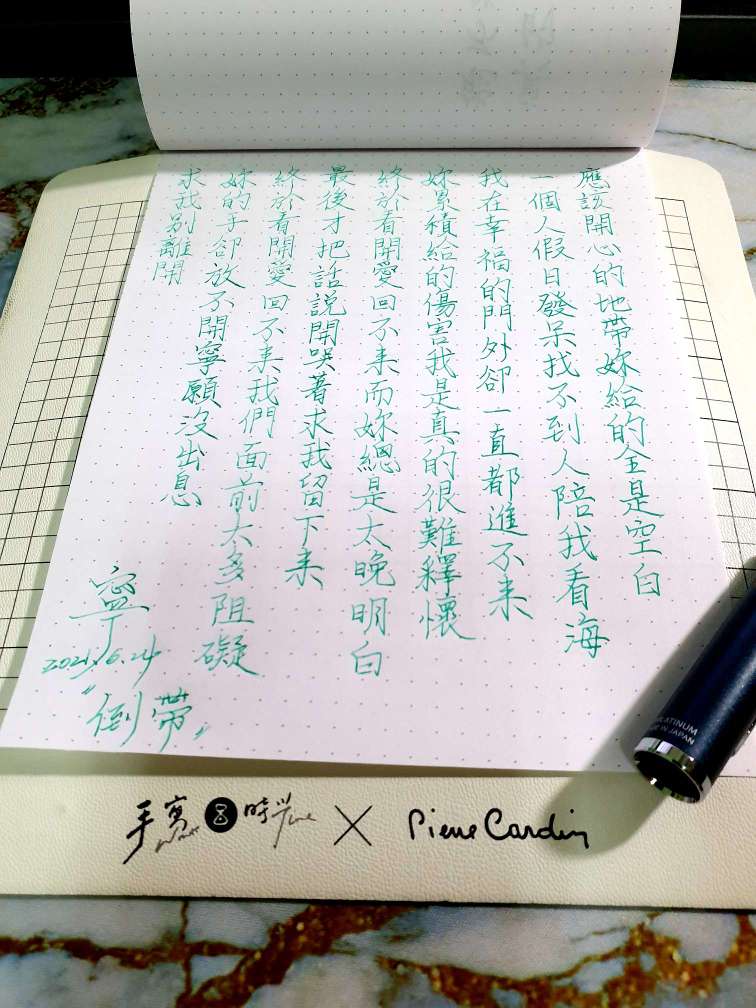 應該開心的地帶妳給的全是空白
一個人假日發呆找不到人陪我看海
我在幸福的門外卻一直都進不来
妳累積給的傷害我是真的很難釋懷
終於看開愛回不来而妳總是太晚明白
最後才把話說開哭著求我留下来
終於看開愛回不来我們面前太多阻礙
妳的手卻放不開寧願沒出息
求我別離開
寧
2021.6.24
"倒帶"
PLATINUM
IN JAPAN
手寫時光 × Pierre Cardin